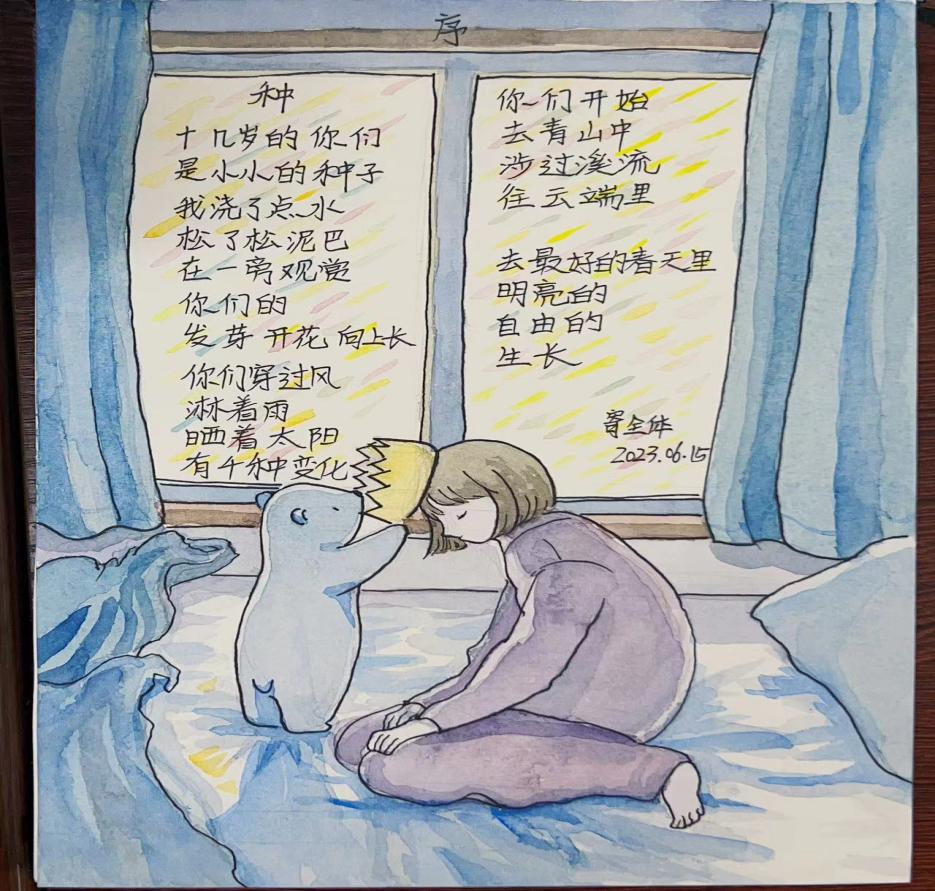 序
种
十几岁的你们
是小小的种子
我浇了点水
松了松泥巴
在一旁观赏
你们的
发芽 开花 向上长
你们穿过风
淋着雨
晒着太阳
有千种变化
你们开始
去青山中
涉过溪流
往云端里
去最好的春天里
明亮的
自由的
生长
寄全体
2023.06.15